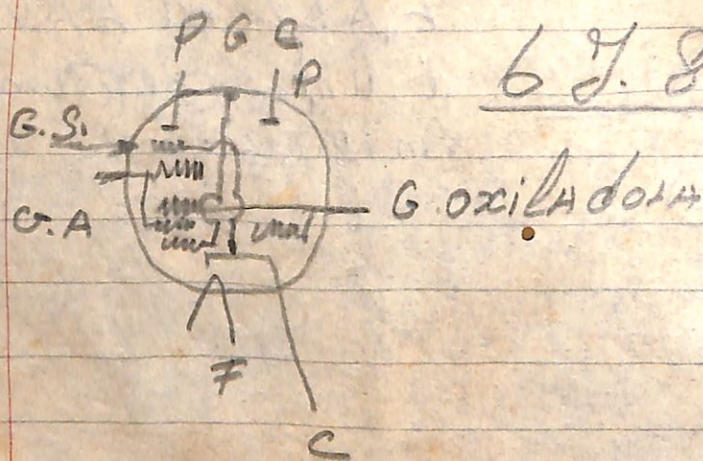 P G C
P
6 J. 8
G. S.
G. A
G. oxiladora
F
C